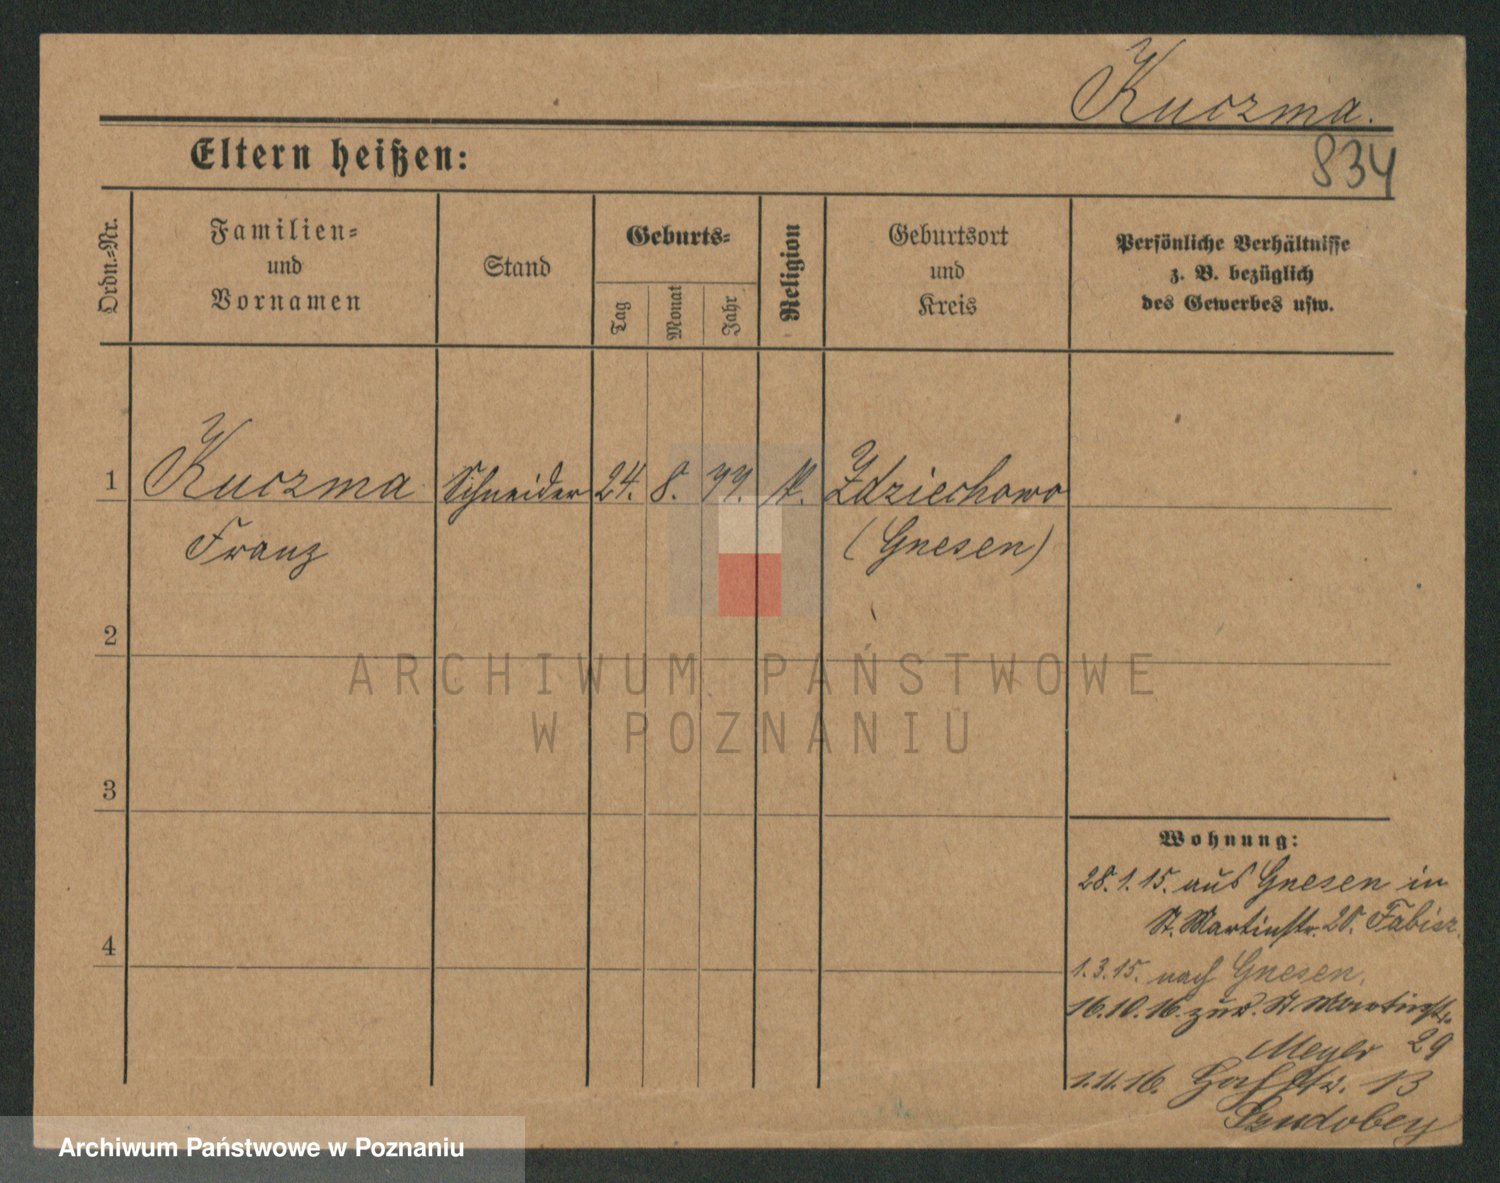 Kuczma.
834
Eltern heißen:
Ordn.-Nr.
Familien-
und
Vornamen
Stand
Geburts-
Tag
Monat
Jahr
Religion
Geburtsort
und
Kreis
Persönliche Verhältnisse
z. B. bezüglich
des Gewerbes usw.
1 Kuczma Schneider 24. 8. Zdziechowo
Franz (Gnesen)
2
3
4
ARCHIWUM PAŃSTWOWE
W POZNANIU
Wohnung:
28.1.15. aus Gnesen in
St. Martinstr. 28. Fabisz.
1.3.15. nach Gnesen.
16.10.16. zur. St Martinstr.
Meyer 29
1.11.16. 13
Archiwum Państwowe w Poznaniu